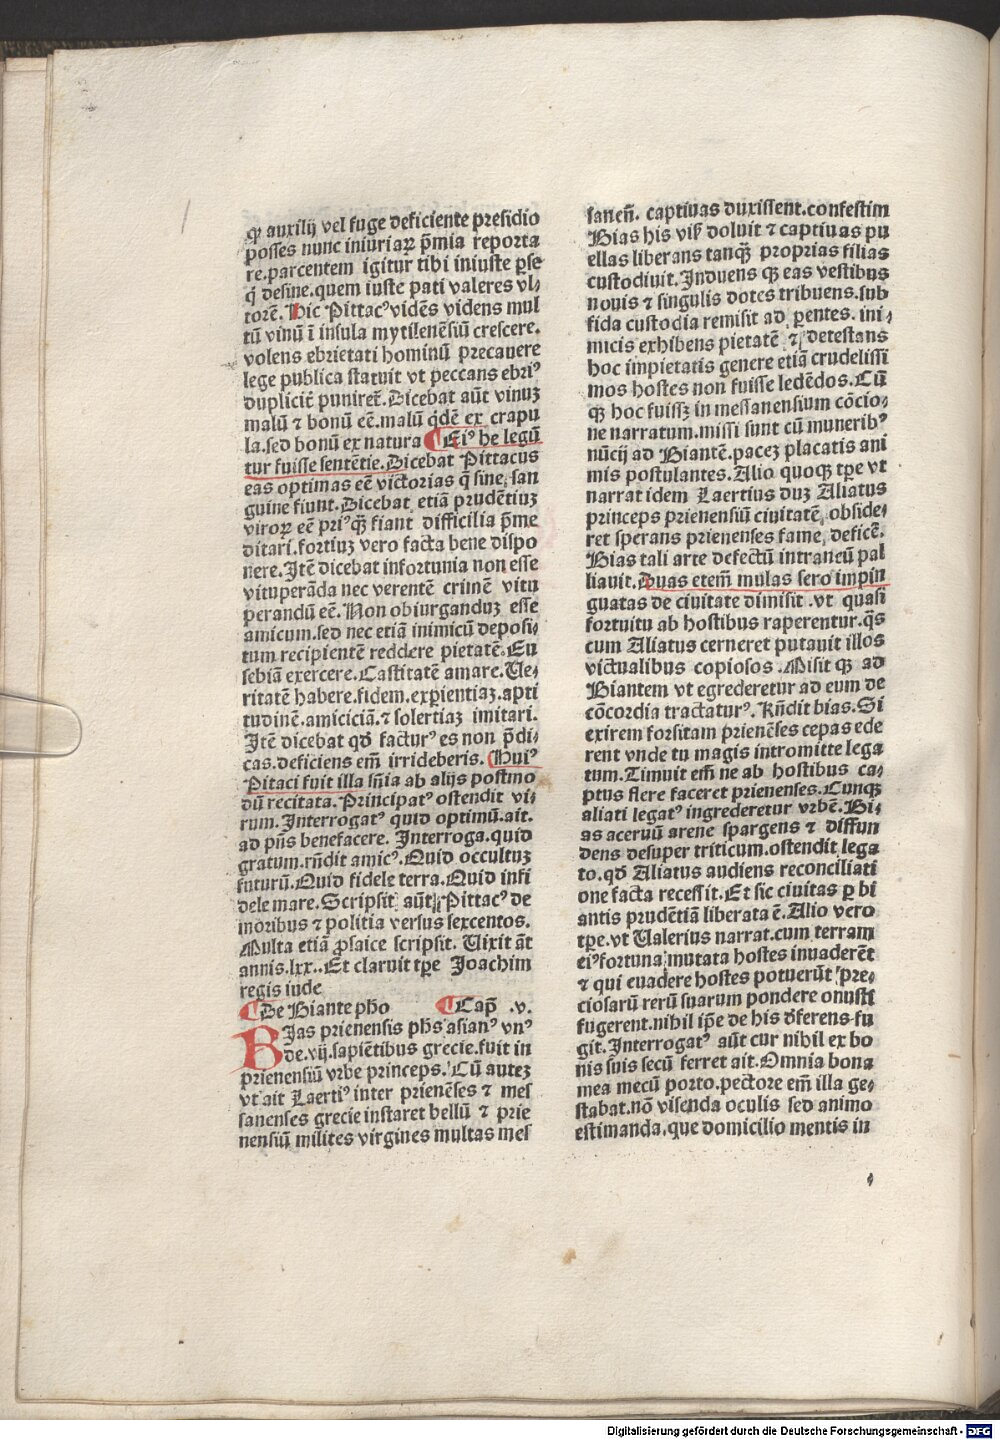 qꝫ auxilij vel fuge deficiente presidio
posses nunc iniuriaꝝ p̄mia reporta
re.parcentem igitur tibi iniuste ꝑse
q̄ desine.quem iuste pati valeres vl⸗
torē. Hic Pittacꝰ vidēs videns mul
tū vinū ī insula mytilenēsiū crescere.
volens ebrietati hominū precauere
lege publica statuit vt peccans ebriꝰ
duplicit̄ puniret̄. Dicebat aūt vinuꝫ
malū ⁊ bonū eē.malū qdē ex crapu
la.sed bonū ex natura ¶ Eiꝰ he legū
tur fuisse sentētie. Dicebat Pittacus
eas optimas eē victorias q̄ sine san
guine fiunt. Dicebat etiā prudētiuꝫ
viroꝝ eē priꝰqꝫ̄ fiant difficilia p̄me
ditari.fortiuꝫ vero facta bene dispo
nere. Itē dicebat infortunia non esse
vituperāda nec verentē crimē vitu
perandū eē. Non obiurganduꝫ esse
amicum.sed nec etiā inimicū deposi⸗
tum recipientē reddere pietatē. Eu
sebiā exercere. Castitatē amare. Ue⸗
ritatē habere.fidem.experientiaꝫ.apti
tudinē.amiciciā.⁊ solertiaꝫ imitari.
Itē dicebat qd̄ facturꝰ es non p̄di⸗
cas.deficiens em̄ irrideberis. ¶ Huiꝰ
Pitaci fuit illa sn̄ia ab alijs postmo
dū recitata. Principatꝰ ostendit vi⸗
rum. Interrogatꝰ quid optimū.ait.
ad pn̄s benefacere. Interroga.quid
gratum.rn̄dit amicꝰ. Quid occultuꝫ
futurū. Quid fidele terra. Quid infi
dele mare. Scripsit aūt Pittacꝰ de
moribus ⁊ politia versus sexcentos.
Multa etiā ꝓsaice scripsit. Uixit āt
annis.lxx.. Et claruit tꝑe Joachim
regis iude
¶ De Biante pho ¶ Cap̄ .v.
BIas prienensis phs asianꝰ vnꝰ
de.vij.sapiētibus grecie.fuit in
prienensiū vrbe princeps. Cū auteꝫ
vt ait Laertiꝰ inter prienēses ⁊ mes
sanenses grecie instaret bellū ⁊ prie
nensiū milites virgines multas mes
sanen̄. captiuas duxissent.confestim
Bias his visꝭ doluit ⁊ captiuas pu
ellas liberans tanqꝫ̄ proprias filias
custodiuit. Induens qꝫ eas vestibus
nouis ⁊ singulis dotes tribuens.sub
fida custodia remisit ad ꝑentes. ini⸗
micis exhibens pietatē ⁊ detestans
hoc impietatis genere etiā crudelissi
mos hostes non fuisse ledēdos. Cū
qꝫ hoc fuissꝫ in messanensium cōcio⸗
ne narratum.missi sunt cū muneribꝰ
nūcij ad Biantē.paceꝫ placatis ani
mis postulantes. Alio quoqꝫ tꝑe vt
narrat idem Laertius duꝫ Aliatus
princeps prienensiū ciuitatē obside⸗
ret sperans prienenses fame deficē.
Bias tali arte defectū intraneū pal
liauit. Duas etem̄ mulas sero impin
guatas de ciuitate dimisit .vt quasi
fortuitu ab hostibus raperentur.qs̄
cum Aliatus cerneret putauit illos
victualibus copiosos. Misit qꝫ ad
Biantem vt egrederetur ad eum de
cōcordia tractaturꝰ. Rn̄dit bias. Si
exirem forsitam prienēses cepas ede
rent vnde tu magis intromitte lega
tum. Timuit em̄ ne ab hostibus ca⸗
ptus flere faceret prienenses. Cunqꝫ
aliati legatꝰ ingrederetur vrbē. Bi⸗
as aceruū arene spargens ⁊ diffun
dens desuper triticum.ostendit lega
to.qd̄ Aliatus audiens reconciliati
one facta recessit. Et sic ciuitas ꝑ bi
antis prudētiā liberata ē. Alio vero
tꝑe.vt Ualerius narrat.cum terram
eiꝰ fortuna mutata hostes inuaderēt
⁊ qui euadere hostes potuerūt pre⸗
ciosarū rerū suarum pondere onusti
fugerent.nihil ip̄e de his d̄ferens fu
git. Interrogatꝰ aūt cur nihil ex bo
nis suis secū ferret ait. Omnia bona
mea mecū porto.pectore em̄ illa ge⸗
stabat.nō visenda oculis sed animo
estimanda.que domicilio mentis in
Digitalisierung gefördert durch die Deutsche Forschungsgemeinschaft - DFG